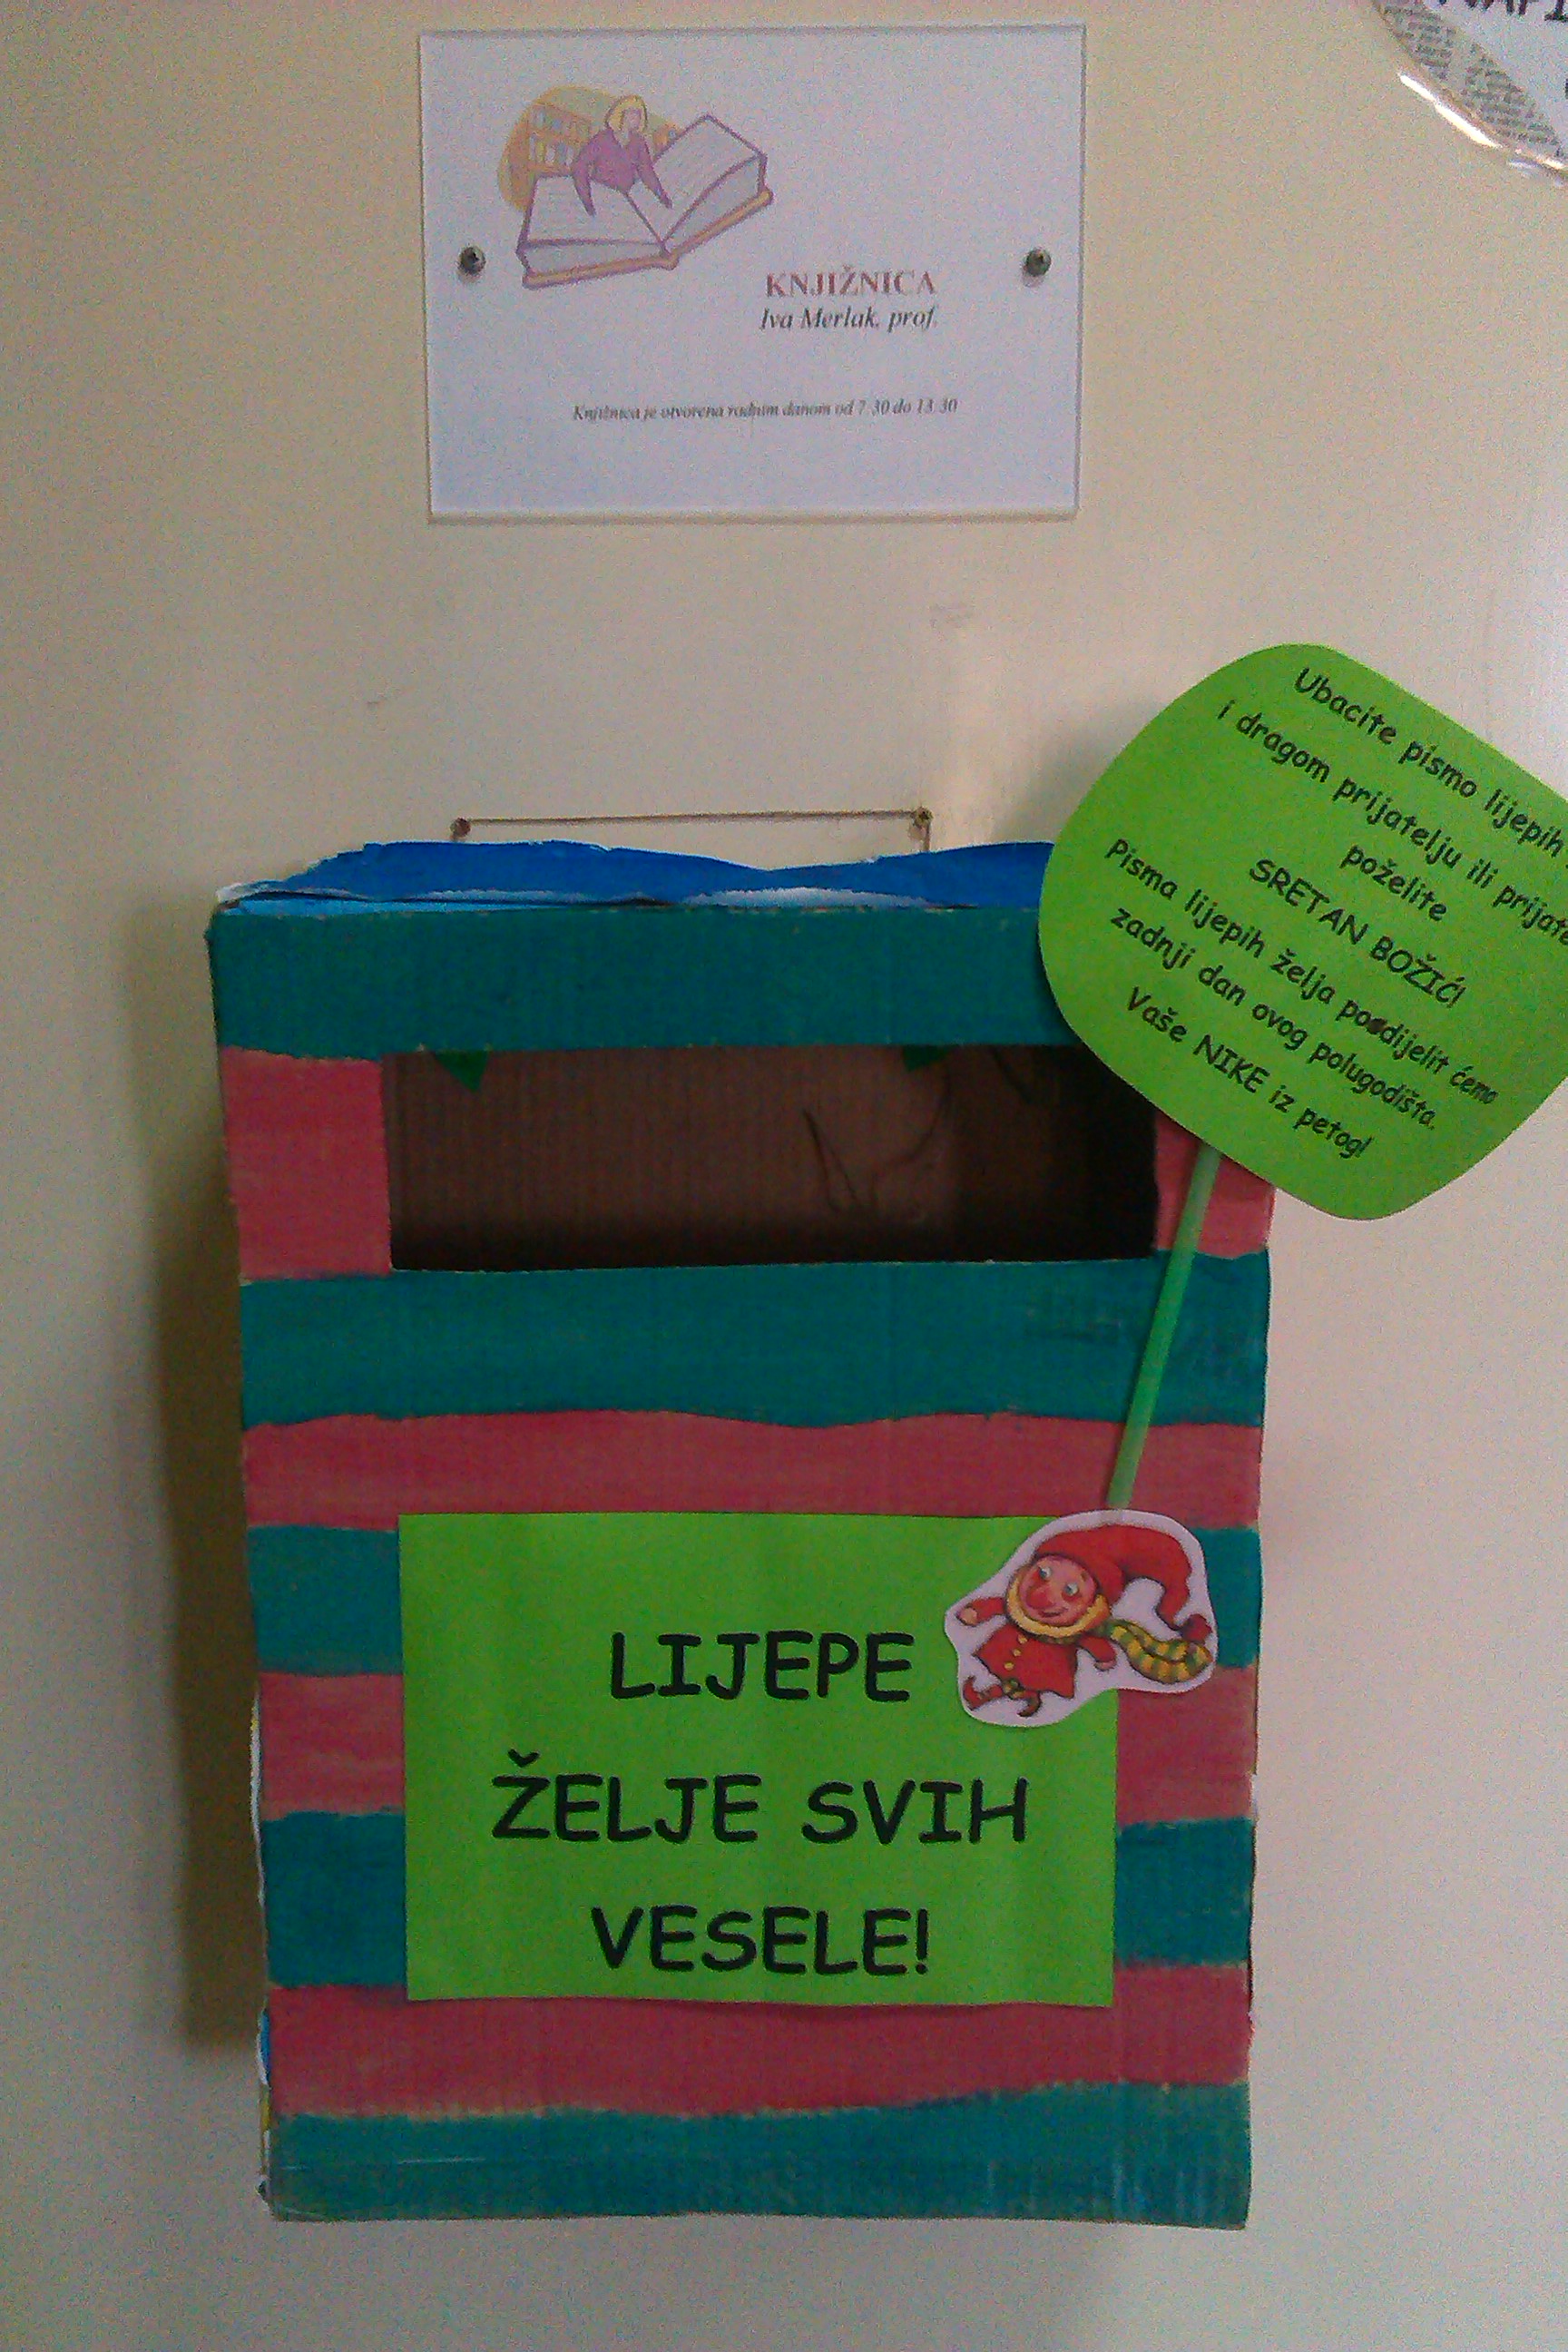 KNJIŽNICA
Iva Merlak, prof.
Knjižnica je otvorena radnim danom od 7.30 do 13.30
Ubacite pismo lijepih
i dragom prijatelju ili
poželite
SRETAN BOŽIĆ!
Pisma lijepih želja podijelit ćemo
zadnji dan ovog polugodišta.
Vaše NIKE iz petog!
LIJEPE
ŽELJE SVIH
VESELE!